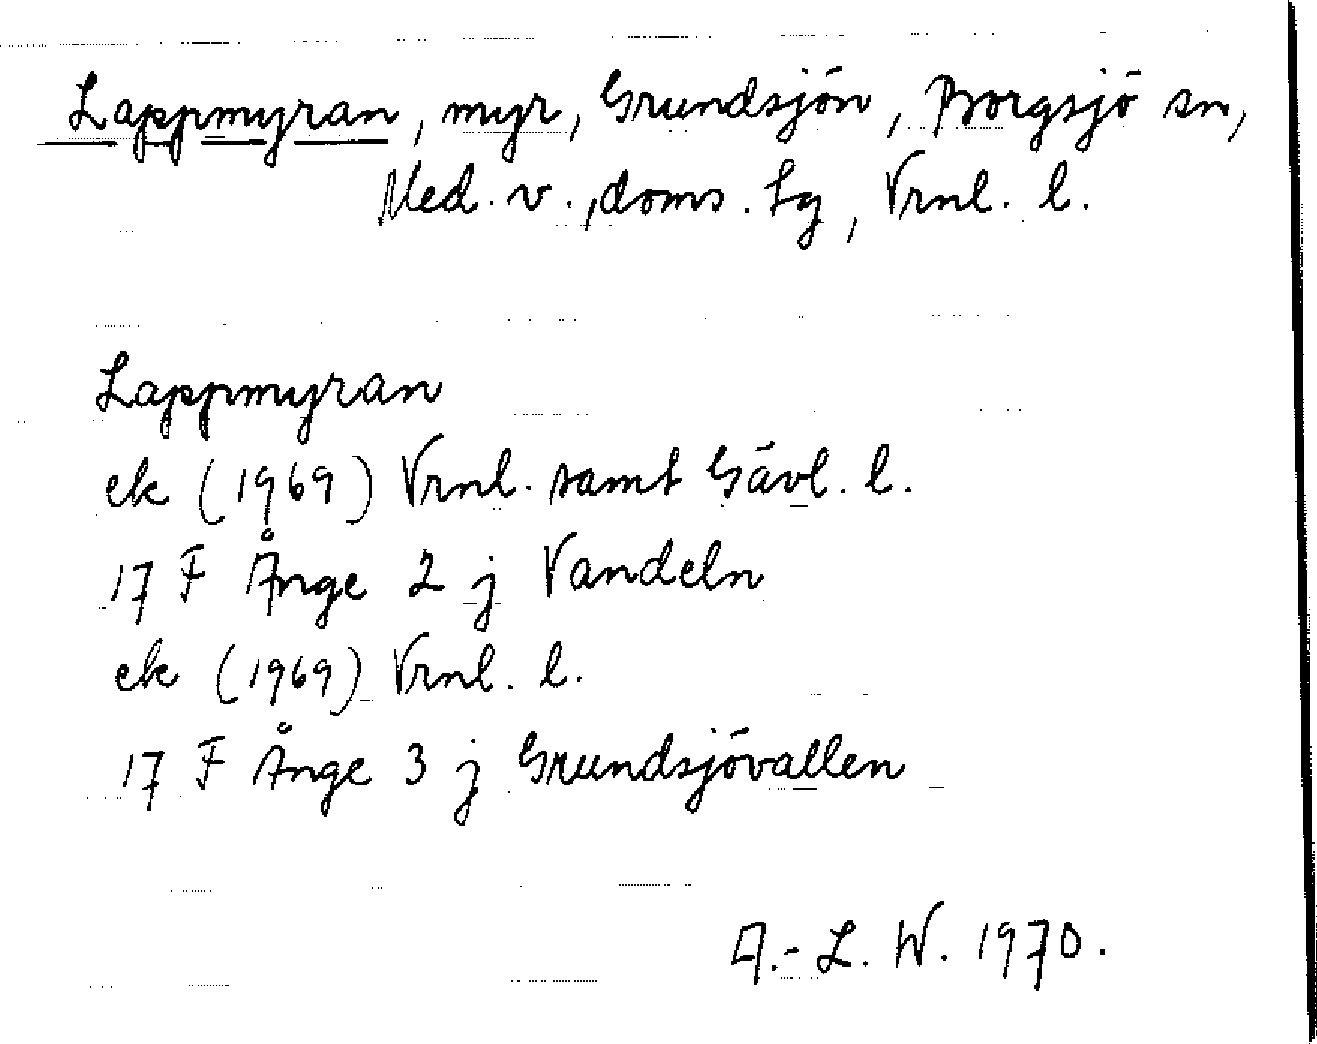 Lappmyran, myr, Grundsjön, Borgsjö sn,
Med. v., doms. sg, Vrnl. l.
Lappmyran
ek (1969) Vrnl. samt Gävl. l.
17 F Ånge 2 j Vandeln
ek (1969) Vrnl. l.
17 F Ånge 3 j Grundsjövallen
A.-L. W. 1970.